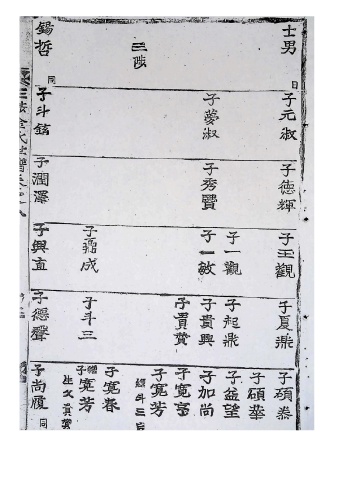 士男
三陟
錫哲
同
子元淑
子夢淑
子斗鉉
子德輝
子秀賢
子潤澤
子玉觀
子一觀
子一敏
子成
子興直
子夏鼎
子起鼎
子貴興
子貫贊
子斗三
子德聲
子碩泰
子碩華
子益望
子加尚
子寬亨
子寬芳
斗三
子寬春
子寬芳
生父貫贊
子尚履
同